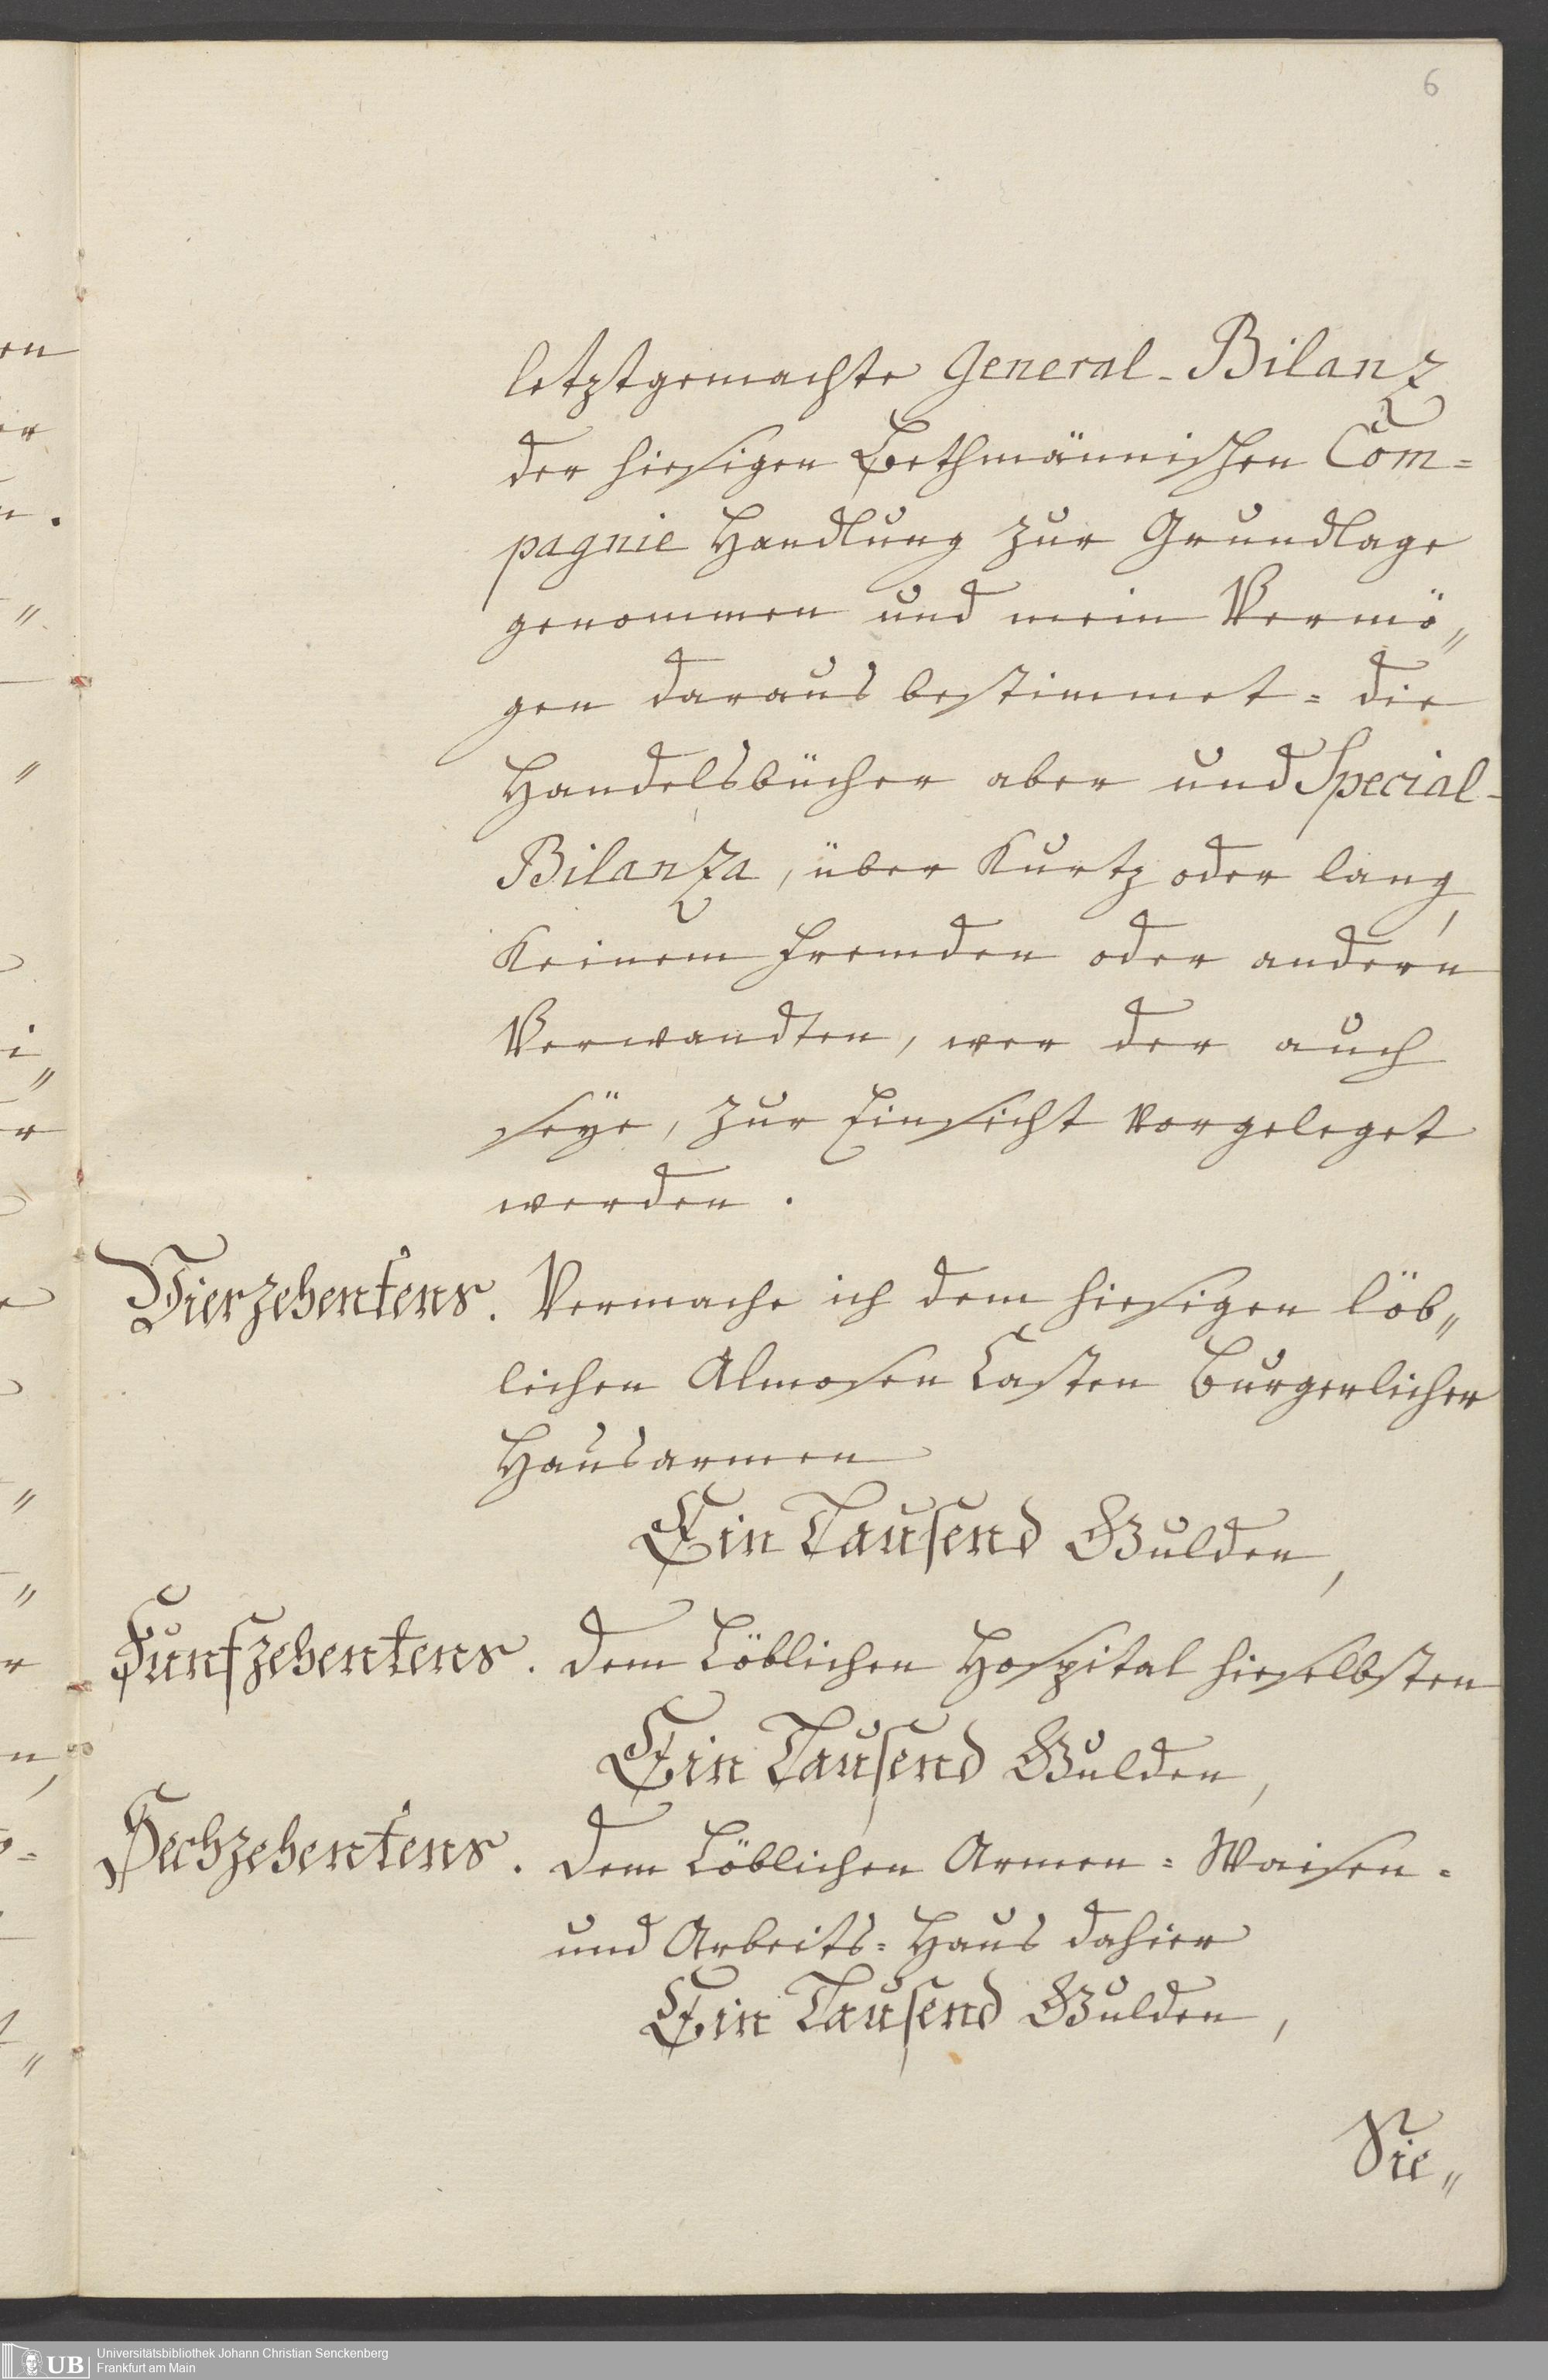 6
letztgemachte General-Bilanz
der hiesigen Bethmännischen Com=
pagnie Handlung zur Grundlage
genommen und mein Vermö„
gen daraus bestimmet = die
Handelsbücher aber und Special-
Bilanza, über Kurtz oder lang,
Keinem Fremden oder andern
Verwandten, wer der auch
seÿe, zur Einsicht vorgeleget
werden.
Vierzehentens. Vermache ich dem hiesigen löb„
lichen Almosen Casten Burgerlicher
Hausarmen
Ein Tausend Gulden,
Funfzehentens. Dem Löblichen Hospital hieselbsten
Ein Tausend Gulden,
Sechzehentens. Dem Löblichen Armen = Waisen =
und Arbeits = Haus dahier
Ein Tausend Gulden,
Sie„
UB Universitätsbibliothek Johann Christian Senckenberg
Frankfurt am Main